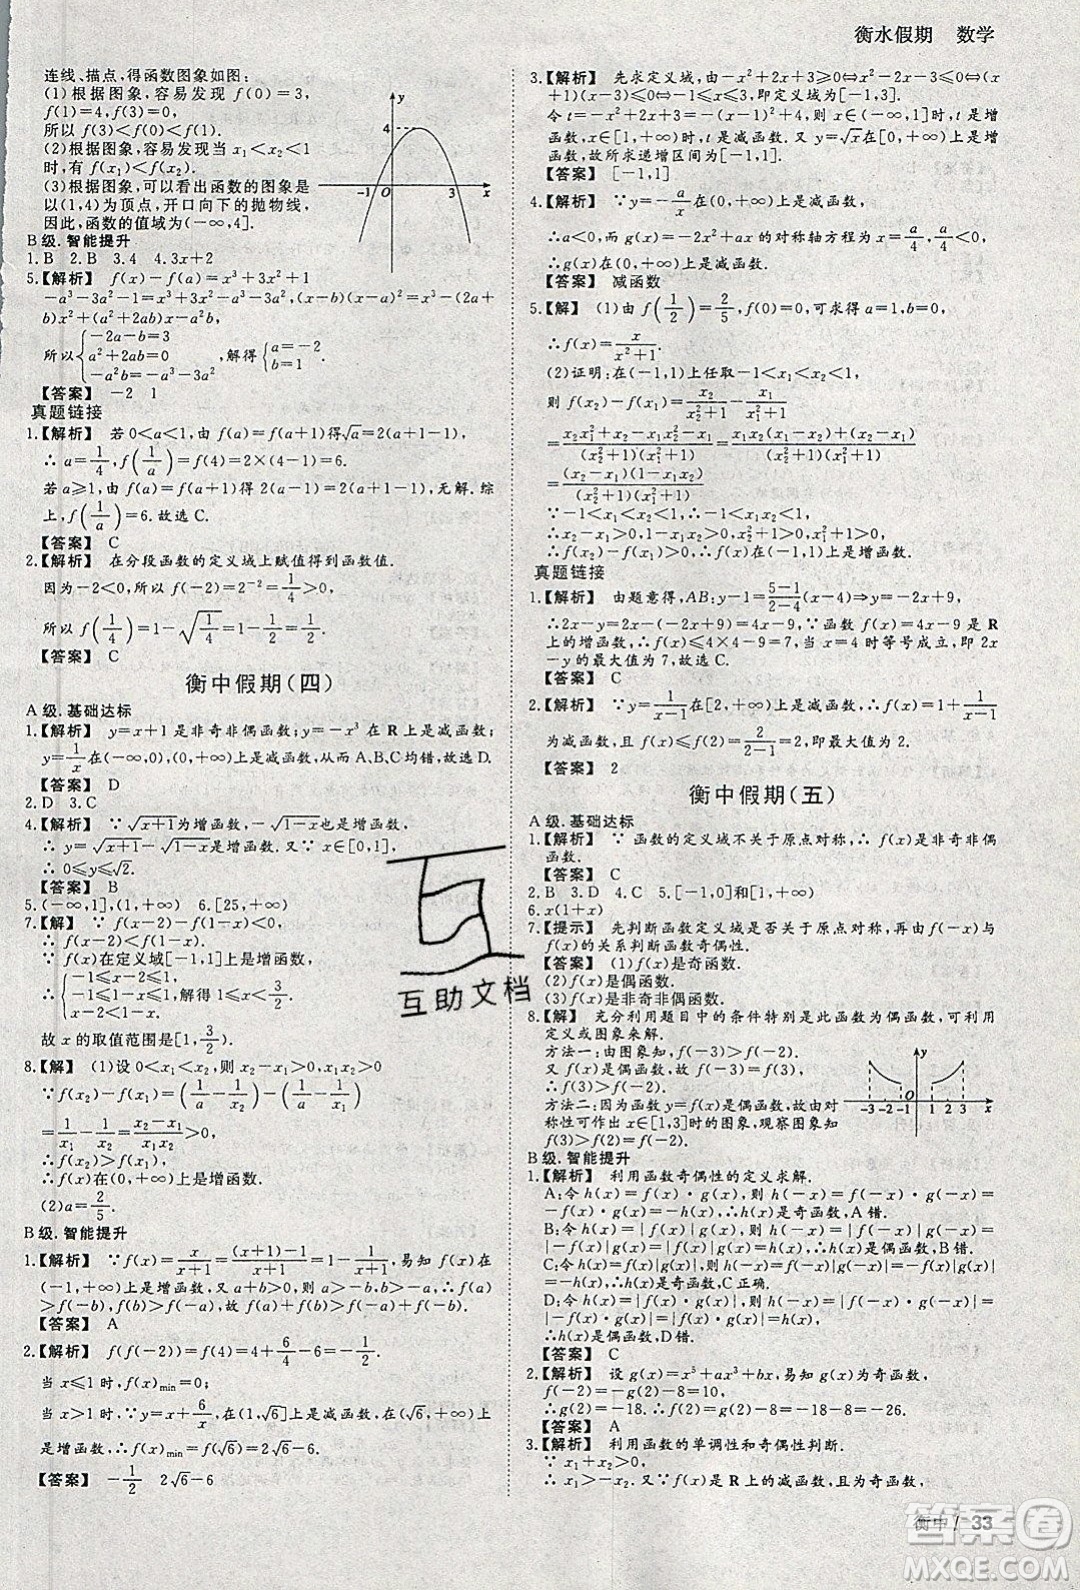 衡水假期 数学
连线、描点,得函数图象如图:
(1)根据图象,容易发现 f(0)=3,
f(1)=4,f(3)=0,
所以 f(3)<f(0)<f(1).
(2)根据图象,容易发现当 x₁<x₂<1
时,有 f(x₁)<f(x₂).
(3)根据图象,可以看出函数的图象是
以(1,4)为顶点,开口向下的抛物线,
因此,函数的值域为(-∞,4].
y
4
-1 O 3 x
B 级.智能提升
1.B 2.B 3.4 4.3x+2
5.【解析】 f(x)-f(a)=x³+3x²+1
-a³-3a²-1=x³+3x²-a³-3a²,(x-b)(x-a)²=x³-(2a+
b)x²+(a²+2ab)x-a²b,
所以{-2a-b=3 a²+2ab=0 -a²b=-3a²-a³,解得{a=-2 b=1.
【答案】 -2 1
真题链接
1.【解析】 若 0<a<1,由 f(a)=f(a+1)得√a=2(a+1-1),
∴a=1/4,f(1/a)=f(4)=2×(4-1)=6.
若 a≥1,由 f(a)=f(a+1)得 2(a-1)=2(a+1-1),无解.综
上,f(1/a)=6.故选 C.
【答案】 C
2.【解析】 在分段函数的定义域上赋值得到函数值.
因为-2<0,所以 f(-2)=2⁻²=1/4>0,
所以 f(1/4)=1-√(1/4)=1-1/2=1/2.
【答案】 C
衡中假期(四)
A 级.基础达标
1.【解析】 y=x+1是非奇非偶函数;y=-x³ 在 R 上是减函数;
y=1/x在(-∞,0),(0,+∞)上是减函数,从而A、B、C均错,故选D.
【答案】 D
2.D 3.C
4.【解析】 ∵√(x+1)为增函数,-√(1-x)也是增函数,
∴y=√(x+1)-√(1-x)是增函数.又∵x∈[0,1],
∴0≤y≤√2.
【答案】 B
5.(-∞,1],(1,+∞) 6.[25,+∞)
7.【解】 ∵f(x-2)-f(1-x)<0,
∴f(x-2)<f(1-x).
∵f(x)在定义域[-1,1]上是增函数,
∴{-1≤x-2≤1, -1≤1-x≤1, x-2<1-x,解得 1≤x<3/2.
故 x 的取值范围是[1,3/2).
8.【解】 (1)设 0<x₁<x₂,则 x₂-x₁>0
∵f(x₂)-f(x₁)=(1/a-1/x₂)-(1/a-1/x₁)
=1/x₁-1/x₂=(x₂-x₁)/(x₁x₂)>0,
∴f(x₂)>f(x₁).
∴f(x)在(0,+∞)上是增函数.
(2)a=2/5.
B 级.智能提升
1.【解析】 ∵f(x)=x/(x+1)=((x+1)-1)/(x+1)=1-1/(x+1),易知f(x)在
(-1,+∞)上是增函数,又 a+b>0,则 a>-b,b>-a,∴f(a)
>f(-b),f(b)>f(-a),故 f(a)+f(b)>f(-a)+f(-b).
【答案】 A
2.【解析】 f(f(-2))=f(4)=4+6/4-6=-1/2,
当 x≤1 时,f(x)min=0;
当 x>1 时,∵y=x+6/x,在(1,√6]上是减函数,在(√6,+∞)上
是增函数,∴f(x)min=f(√6)=2√6-6.
【答案】 -1/2 2√6-6
3.【解析】 先求定义域,由-x²+2x+3≥0⇔x²-2x-3≤0⇔(x
+1)(x-3)≤0⇔-1≤x≤3,即定义域为[-1,3].
令 t=-x²+2x+3=-(x-1)²+4,则 x∈[-1,1]时,t 是增
函数,x∈[1,3]时,t 是减函数.又∵y=√x在[0,+∞)上是增
函数,故所求递增区间为[-1,1].
【答案】 [-1,1]
4.【解析】 ∵y=-a/x在(0,+∞)上是减函数,
∴a<0,而 g(x)=-2x²+ax 的对称轴方程为 x=a/4,且a/4<0,
∴g(x)在(0,+∞)上是减函数.
【答案】 减函数
5.【解】 (1)由 f(1/2)=2/5,可求得 a=1,b=0,
∴f(x)=x/(x²+1).
(2)证明:在(-1,1)上任取-1<x₁<x₂<1,
则 f(x₂)-f(x₁)=x₂/(x₂²+1)-x₁/(x₁²+1)
=(x₂x₁²+x₂-x₁x₂²-x₁)/((x₂²+1)(x₁²+1))=(x₁x₂(x₁-x₂)+(x₂-x₁))/((x₂²+1)(x₁²+1))
=(x₂-x₁)(1-x₁x₂)/((x₂²+1)(x₁²+1)).
∵-1<x₁<x₂<1,∴x₂-x₁>0,1-x₁x₂>0,x₁²+1>0,
x₂²+1>0,∴f(x₂)-f(x₁)>0,∴f(x)在(-1,1)上是增函数.
真题链接
1.【解析】 由题意得,AB:y-1=(5-1)/(2-4)(x-4)⇒y=-2x+9,
∴2x-y=2x-(-2x+9)=4x-9,∵函数 f(x)=4x-9 是 R
上的增函数,∴f(x)≤4×4-9=7,当 x=4 时等号成立,即 2x
-y 的最大值为 7,故选 C.
【答案】 C
2.【解析】 ∵y=1/(x-1)在[2,+∞)上是减函数,∴f(x)=1+1/(x-1)
为减函数,且 f(x)≤f(2)=2/(2-1)=2,即最大值为 2.
【答案】 2
衡中假期(五)
A 级.基础达标
1.【解析】 ∵函数的定义域不关于原点对称,∴此函数是非奇非偶
函数.
【答案】 C
2.B 3.D 4.C 5.[-1,0]和[1,+∞)
6.x(1+x)
7.【提示】 先判断函数定义域是否关于原点对称,再由 f(-x)与
f(x)的关系判断函数奇偶性.
【答案】 (1)f(x)是奇函数.
(2)f(x)是偶函数.
(3)f(x)是非奇非偶函数.
8.【解】 充分利用题目中的条件特别是此函数为偶函数,可以利用
定义或图象来解.
方法一:由图象知,f(-3)>f(-2).
又 f(x)是偶函数,∴f(-3)=f(3),f(-2)=f(2).
∴f(3)>f(2)>f(-2).
方法二:因为函数 y=f(x)是偶函数,由对
称性可作出 x∈[1,3]时的图象,观察图象由
f(3)>f(2)=f(-2).
y
-3 -2 -1 O 1 2 3 x
B 级.智能提升
1.【解析】 利用函数奇偶性的定义求解.
A:令 h(x)=f(x)·g(x),则 h(-x)=f(-x)·g(-x)=
-f(x)·g(x)=-h(x),∴h(x)是奇函数,A 错.
B:令h(x)=|f(x)|g(x),则h(-x)=|f(-x)|g(-x)=|-f
(x)|g(x)=|f(x)|g(x)=h(x),∴h(x)是偶函数,B 错.
C:令 h(x)=f(x)|g(x)|,则 h(-x)=f(-x)|g(-x)|=
-f(x)|g(x)|=-h(x),∴h(x)是奇函数,C 正确.
D:令h(x)=|f(x)·g(x)|,则h(-x)=|f(-x)·g(-x)|
=|-f(x)·g(x)|=|f(x)·g(x)|=h(x),
∴h(x)是偶函数,D 错.
【答案】 C
2.【解析】 设 g(x)=x⁵+ax³+bx,则 g(x)为奇函数,
f(-2)=g(-2)-8=-g(2)-8=10,
∴g(2)=-18.∴f(2)=g(2)-8=-18-8=-26.
【答案】 A
3.【解析】 利用函数的单调性和奇偶性判断.
∵x₁>-x₂,又∵f(x)是 R 上的减函数,且为奇函数,
互助文档
答案圈
MXQE.COM
衡中/33